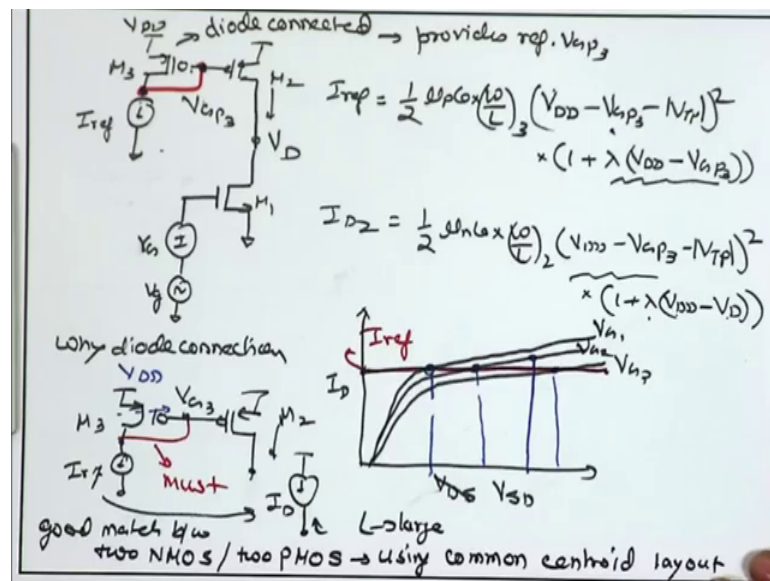 VDD → diode connected → provides ref. VGP3
M3
M2
Iref
VGP3
VD
M1
VG
Vg
Iref = 1/2 μpCox (W/L)3 (VDD - VGP3 - |VTP|)²
× (1 + λ(VDD - VGP3))
ID2 = 1/2 μnCox × (W/L)2 (VDD - VGP3 - |VTP|)²
× (1 + λ(VDD - VD))
Why diode connection
VDD
VG3
M3
M2
Iref
Must
ID
Iref
ID
VG1
VG2
VG3
VDS VSD
L → large
good match b/w
two NMOS / two PMOS → using common centroid layout